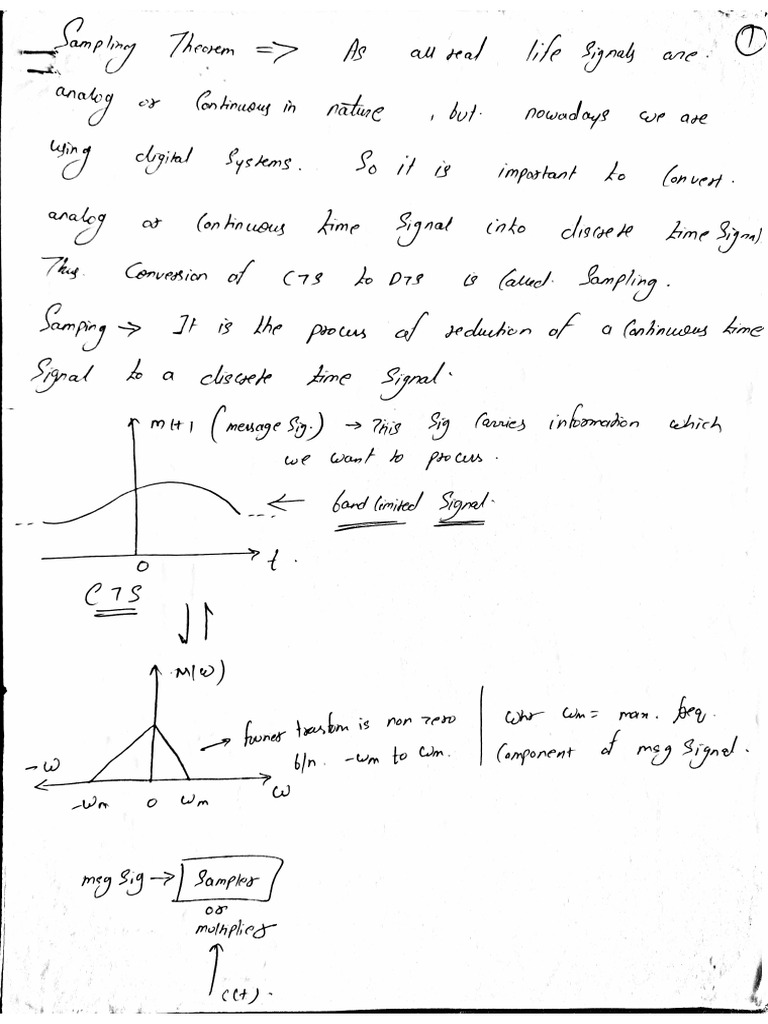 1
Sampling Theorem => As all real life signals are.
analog or Continuous in nature, but nowadays we are
using digital Systems. So it is important to Convert.
analog or Continuous time Signal into discrete time Signal
Thus Conversion of CTS to DTS is Called Sampling.
Samping → It is the process of reduction of a Continuous time
Signal to a discrete time Signal.
m(t) (message Sig.) → This Sig Carries information which
we want to process.
← band limited Signal.
0
t.
CTS
M(ω)
→ fourier transfom is non zero
b/n. -ωm to ωm.
whr ωm = max. freq.
Component of msg Signal.
-ω
-ωm 0 ωm
ω
msg Sig → Sampler
or
multiplier
c(t).